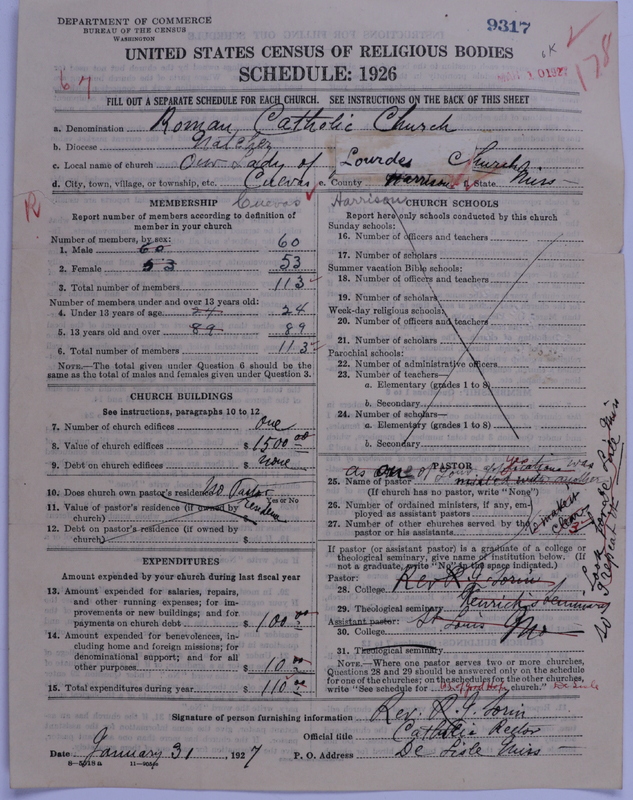 DEPARTMENT OF COMMERCE
BUREAU OF THE CENSUS
WASHINGTON
9317
OK
178
67
UNITED STATES CENSUS OF RELIGIOUS BODIES
SCHEDULE: 1926
FILL OUT A SEPARATE SCHEDULE FOR EACH CHURCH. SEE INSTRUCTIONS ON THE BACK OF THIS SHEET
a. Denomination Roman Catholic Church
b. Diocese Natchez
c. Local name of church Our Lady of Lourdes Church
d. City, town, village, or township, etc. Cuevas e. County Harrison f. State Miss
R
Cuevas Harrison
MEMBERSHIP
Report number of members according to definition of member in your church
Number of members, by sex:
1. Male 60 60
2. Female 53 53
3. Total number of members 113
Number of members under and over 13 years old:
4. Under 13 years of age 24 24
5. 13 years old and over 89 89
6. Total number of members 113
NOTE.—The total given under Question 6 should be the same as the total of males and females given under Question 3.
CHURCH BUILDINGS
See instructions, paragraphs 10 to 12
7. Number of church edifices one
8. Value of church edifices $ 1500 00
9. Debt on church edifices $ none
10. Does church own pastor's residence? No Pastor
Yes or No
11. Value of pastor's residence (if owned by church) $
12. Debt on pastor's residence (if owned by church) $
EXPENDITURES
Amount expended by your church during last fiscal year
13. Amount expended for salaries, repairs, and other running expenses; for improvements or new buildings; and for payments on church debt $ 100
14. Amount expended for benevolences, including home and foreign missions; for denominational support; and for all other purposes $ 10
15. Total expenditures during year $ 110
CHURCH SCHOOLS
Report here only schools conducted by this church
Sunday schools:
16. Number of officers and teachers
17. Number of scholars
Summer vacation Bible schools:
18. Number of officers and teachers
19. Number of scholars
Week-day religious schools:
20. Number of officers and teachers
21. Number of scholars
Parochial schools:
22. Number of administrative officers
23. Number of teachers—
a. Elementary (grades 1 to 8)
b. Secondary
24. Number of scholars—
a. Elementary (grades 1 to 8)
b. Secondary
PASTOR
25. Name of pastor
(If church has no pastor, write "None")
26. Number of ordained ministers, if any, employed as assistant pastors
27. Number of other churches served by the pastor or his assistants 3
If pastor (or assistant pastor) is a graduate of a college or theological seminary, give name of institution below. (If not a graduate, write "No" in the space indicated.)
Pastor:
28. College Rev R. J. Sorin
29. Theological seminary Kenrick Seminary
Assistant pastor: St Louis Mo
30. College
31. Theological seminary
NOTE.—Where one pastor serves two or more churches, Questions 28 and 29 should be answered only on the schedule for one of the churches; on the schedules for the other churches, write "See schedule for O. L. of Good Hope church." De Lisle
Signature of person furnishing information Rev. R. J. Sorin
Official title Catholic Rector
Date January 31, 1927 P. O. Address De Lisle Miss
8—5018a